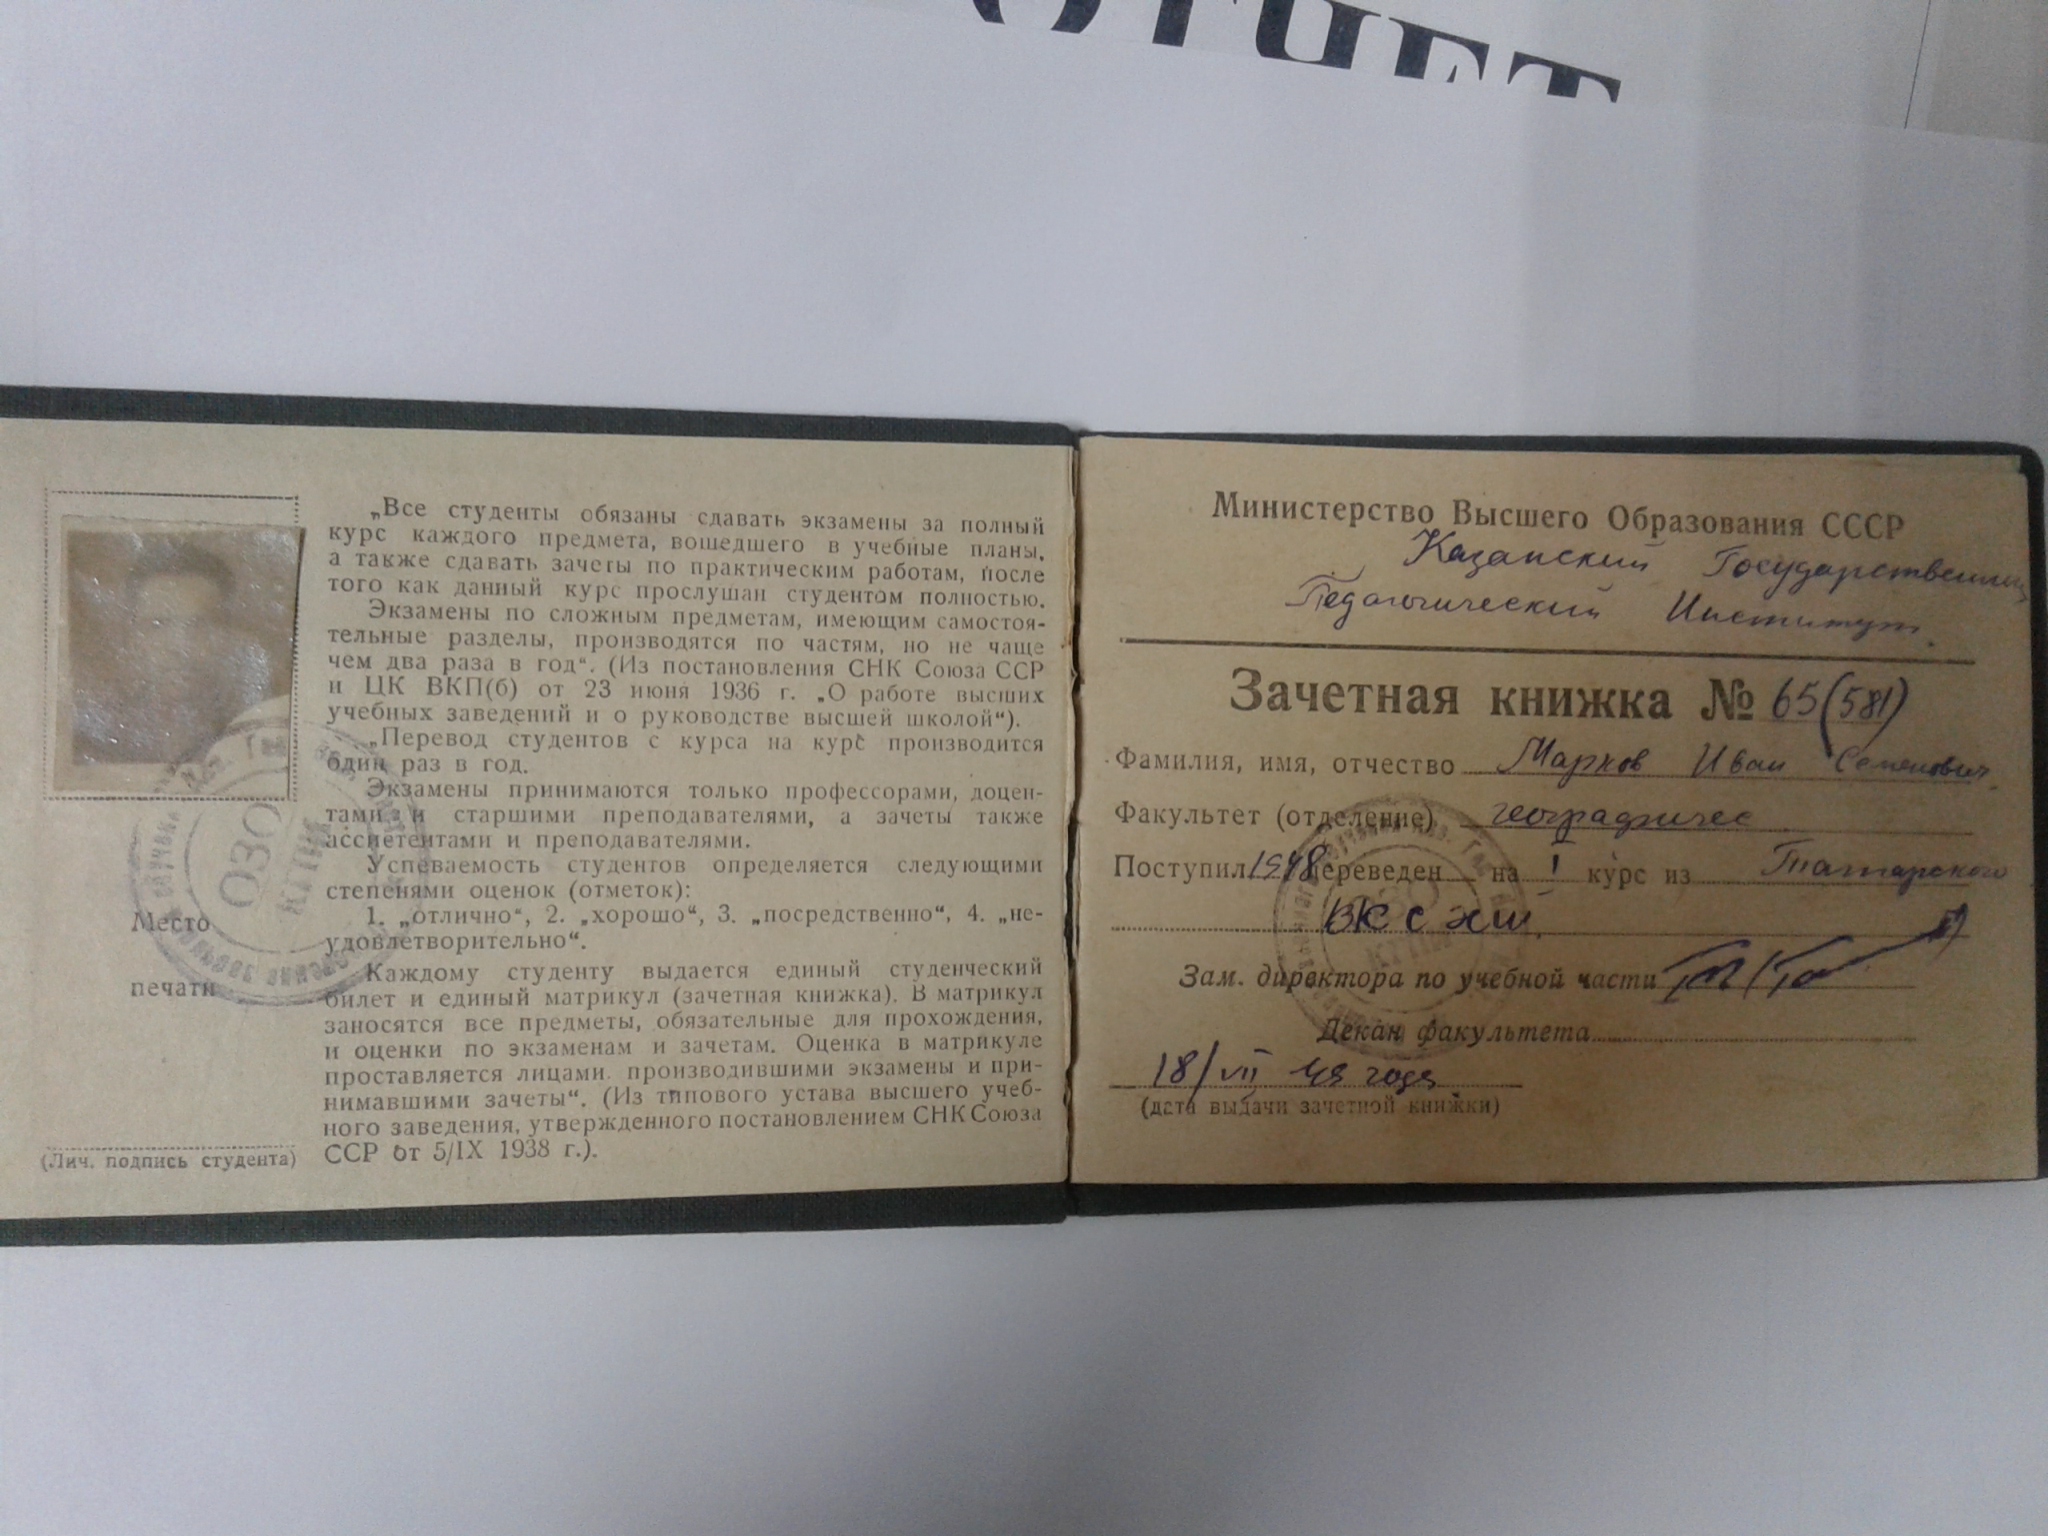 ОТЧЕТ
„Все студенты обязаны сдавать экзамены за полный
курс каждого предмета, вошедшего в учебные планы,
а также сдавать зачеты по практическим работам, после
того как данный курс прослушан студентом полностью.
Экзамены по сложным предметам, имеющим самостоя-
тельные разделы, производятся по частям, но не чаще
чем два раза в год“. (Из постановления СНК Союза ССР
и ЦК ВКП(б) от 23 июня 1936 г. „О работе высших
учебных заведений и о руководстве высшей школой“).
„Перевод студентов с курса на курс производится
один раз в год.
Экзамены принимаются только профессорами, доцен-
тами и старшими преподавателями, а зачеты также
ассистентами и преподавателями.
Успеваемость студентов определяется следующими
степенями оценок (отметок):
1. „отлично“, 2. „хорошо“, 3. „посредственно“, 4. „не-
удовлетворительно“.
Каждому студенту выдается единый студенческий
билет и единый матрикул (зачетная книжка). В матрикул
заносятся все предметы, обязательные для прохождения,
и оценки по экзаменам и зачетам. Оценка в матрикуле
проставляется лицами, производившими экзамены и при-
нимавшими зачеты“. (Из типового устава высшего учеб-
ного заведения, утвержденного постановлением СНК Союза
ССР от 5/IX 1938 г.).
ОЗО
КГПИ
Место
печати
(Лич. подпись студента)
Министерство Высшего Образования СССР
Казанский Государственный
Педагогический Институт.
Зачетная книжка № 65(581)
Фамилия, имя, отчество Марков Иван Семенович
Факультет (отделение) географичес
Поступил 1948 переведен на I курс из Татарского
ВКСХШ.
Зам. директора по учебной части
Декан факультета
18/VII 49 года
(дата выдачи зачетной книжки)